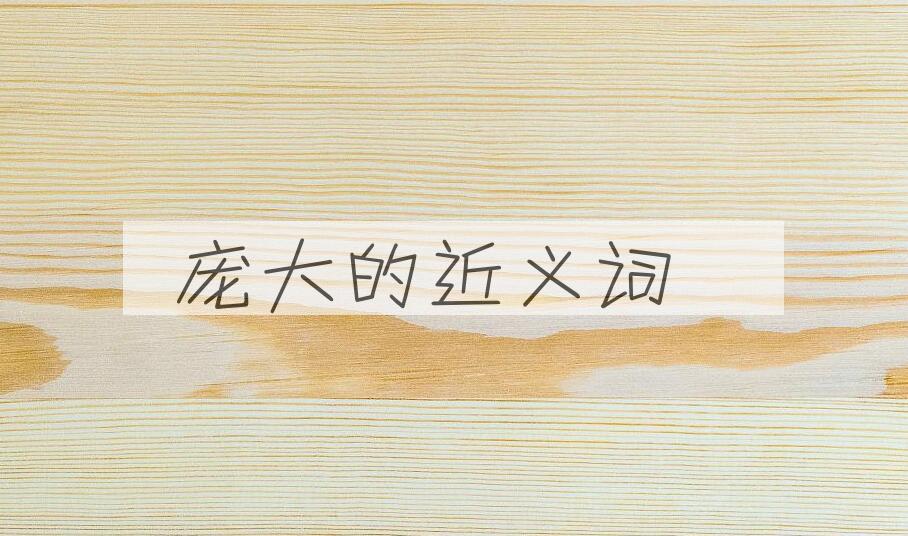 庞大的近义词